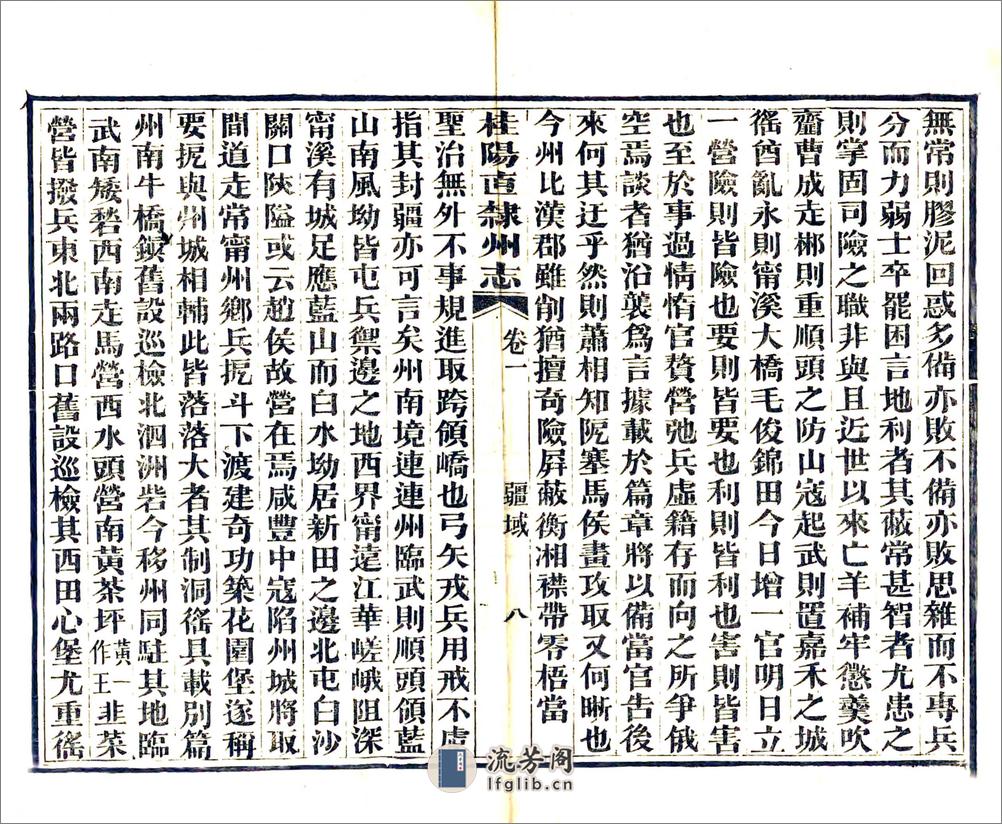 無常則膠泥回惑多備亦敗不備亦敗思雜而不專兵
分而力弱士卒罷困言地利者其蔽常甚智者尤患之
則掌固司險之職非與且近世以來亡羊補牢懲羹吹
齏曹成走郴則重順頭之防山寇起武則置嘉禾之城
徭酋亂永則甯溪大橋毛俊錦田今日增一官明日立
一營險則皆險也要則皆要也利則皆利也害則皆害
也至於事過情惰官贅營弛兵虛籍存而向之所爭俄
空焉談者猶沿襲爲言據載於篇章將以備當官告後
來何其迂乎然則蕭相知阨塞馬侯畫攻取又何晰也
今州比漢郡雖削猶擅奇險屛蔽衡湘襟帶零梧當
桂陽直隸州志 卷一 疆域 八
聖治無外不事規進取跨領嶠也弓矢戎兵用戒不虞
指其封疆亦可言矣州南境連連州臨武則順頭領藍
山南風坳皆屯兵禦邊之地西界甯遠江華嵯峨阻深
甯溪有城足應藍山而白水坳居新田之邊北屯白沙
關口陝隘或云趙侯故營在焉咸豐中寇陷州城將取
間道走常甯州鄉兵扼斗下渡建奇功築花園堡遂稱
要扼與州城相輔此皆落落大者其制洞徭具載別篇
州南牛橋鎭舊設巡檢北泗洲砦今移州同駐其地臨
武南矮砦西南走馬營西水頭營南黃茶坪黃一作王韭菜
營皆撥兵東北兩路口舊設巡檢其西田心堡尤重徭
流芳阁
lfglib.cn